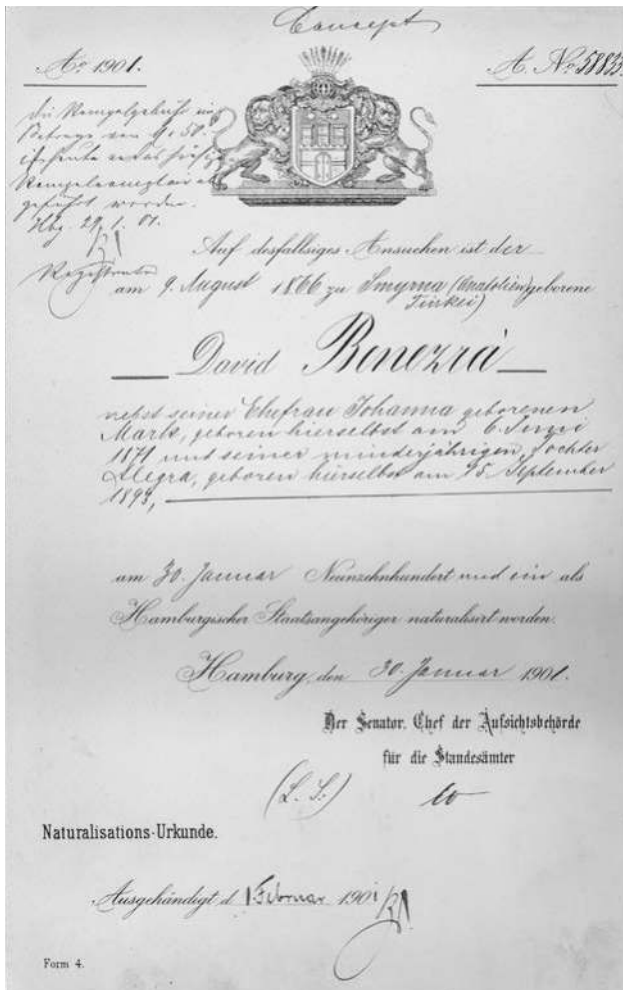 Concept
Ao 1901.
A. No 58833.
die Stempelgebühr im
Betrage von M. 50.
ist heute
Stempelexemplar
geführt worden.
Hbg. 29. 1. 01.
Registrator
Auf desfallsiges Ansuchen ist der
am 9. August 1866 zu Smyrna (Anatolien, geborene
Türkei)
David Benezrà
nebst seiner Ehefrau Johanna geborenen
Mark, geboren hierselbst am 6. Juni
1871 und seiner minderjährigen Tochter
Alegra, geboren hierselbst am 25. September
1893,
am 30. Januar Neunzehnhundert und ein als
Hamburgischer Staatsangehöriger naturalisirt worden.
Hamburg, den 30. Januar 1901.
Der Senator, Chef der Aufsichtsbehörde
für die Standesämter
(L. S.)
Naturalisations-Urkunde.
Ausgehändigt d. 1. Februar 1901
Form 4.